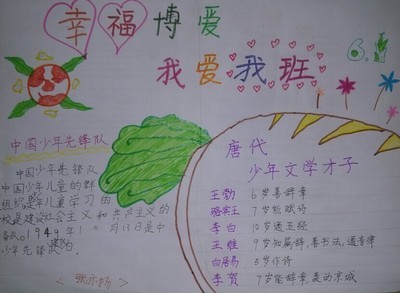 幸福博爱
我爱我班
6.1
中国少年先锋队
中国少年先锋队
中国少年儿童的群
组织是少年儿童学习的
校是建设社会主义和共产主义的
备队。1949年10月13日是中
少年先锋建队
唐代
少年文学才子
王勃 6岁善辞章
骆宾王 7岁能赋诗
李白 10岁通五经
王维 9岁知属辞,善书法,通音律
白居易 5岁作诗
李贺 7岁能辞章,轰动京城